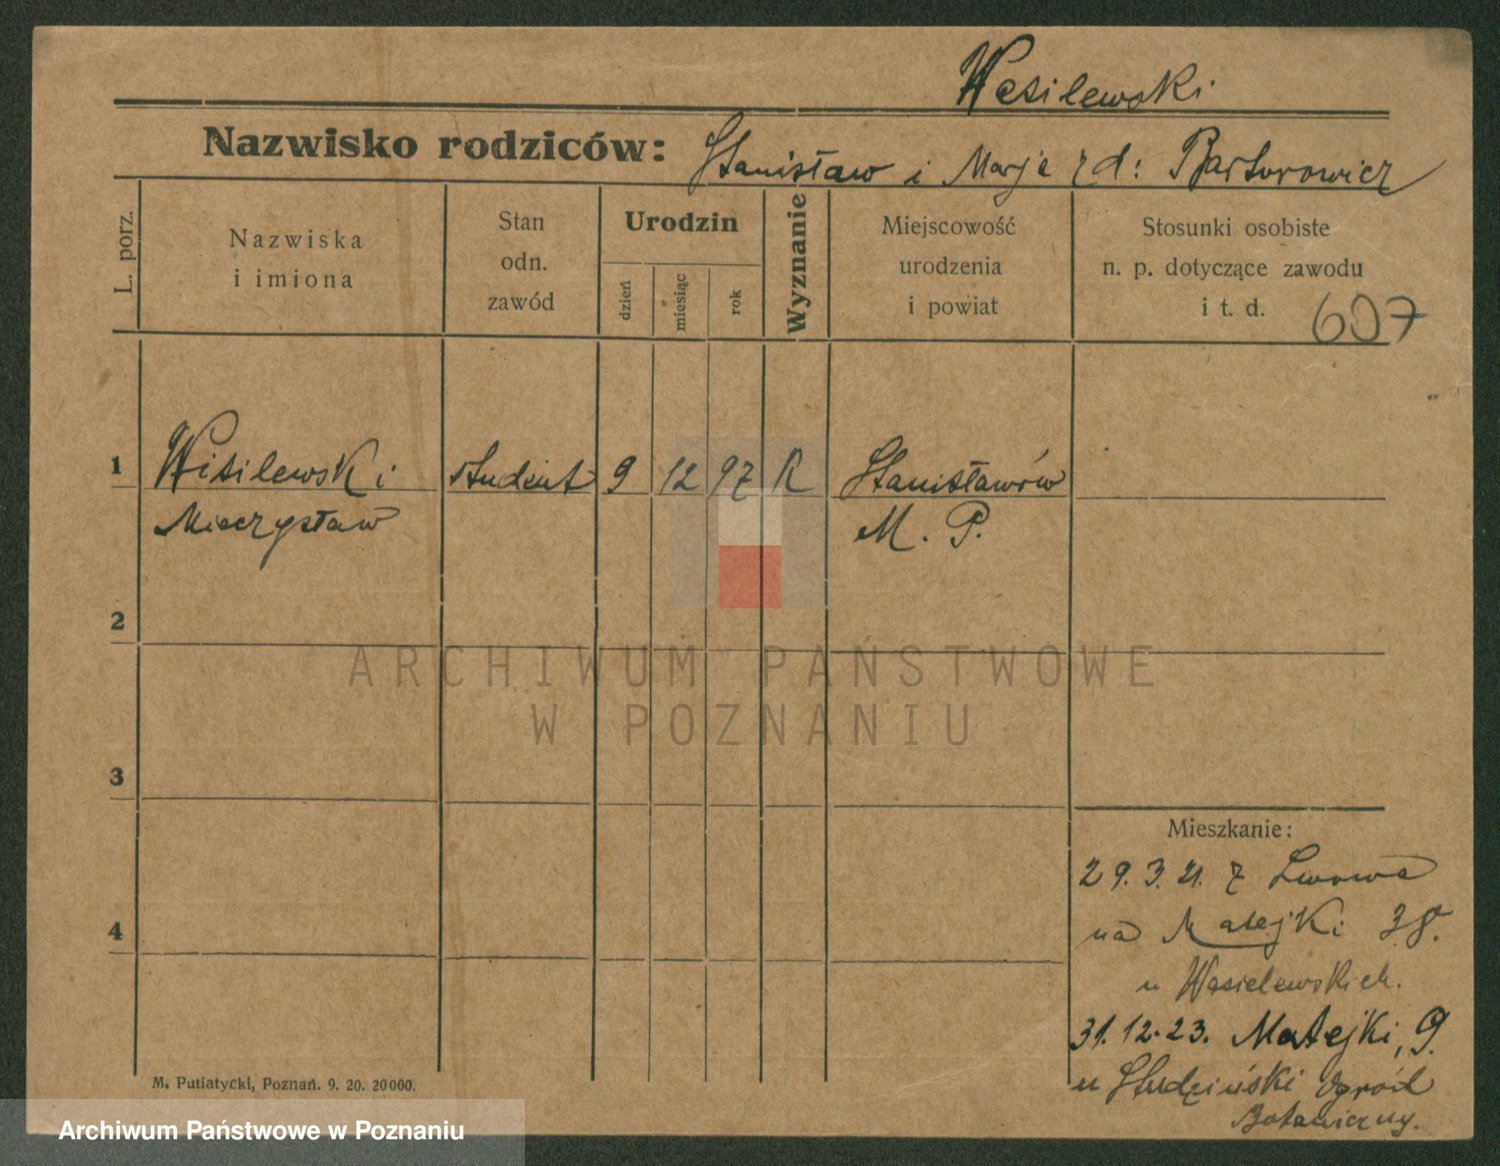 Wasilewski
Nazwisko rodziców: Stanisław i Marja z d: Barturowicz
L. porz.
Nazwiska
i imiona
Stan
odn.
zawód
Urodzin
dzień
miesiąc
rok
Wyznanie
Miejscowość
urodzenia
i powiat
Stosunki osobiste
n. p. dotyczące zawodu
i t. d.
607
1 Wasilewski student 9 12 97 R Stanisławów
Mieczysław M. P.
2
ARCHIWUM PAŃSTWOWE
W POZNANIU
3
Mieszkanie:
29.3.21. z Lwowa
4
na Matejki 38.
u Wasielewskich.
31.12.23. Matejki, 9.
u Studziński Ogród
Botaniczny.
M. Putiatycki, Poznań. 9. 20. 20000.
Archiwum Państwowe w Poznaniu